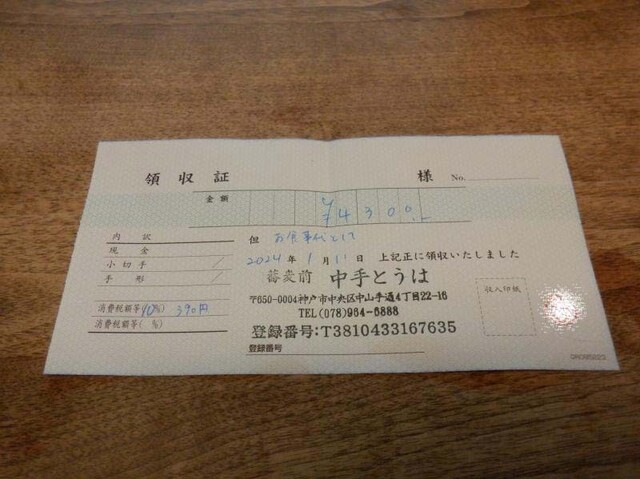 領収証 様 No.
金額 ¥4300.-
内訳 但 お食事代として
現金 2024年1月11日 上記正に領収いたしました
小切手 蕎麦前 中手とうは
手形 〒650-0004神戸市中央区中山手通4丁目22-16
収入印紙
TEL(078)964-6888
消費税額等(10%) 390円
消費税額等( %) 登録番号:T3810433167635
登録番号